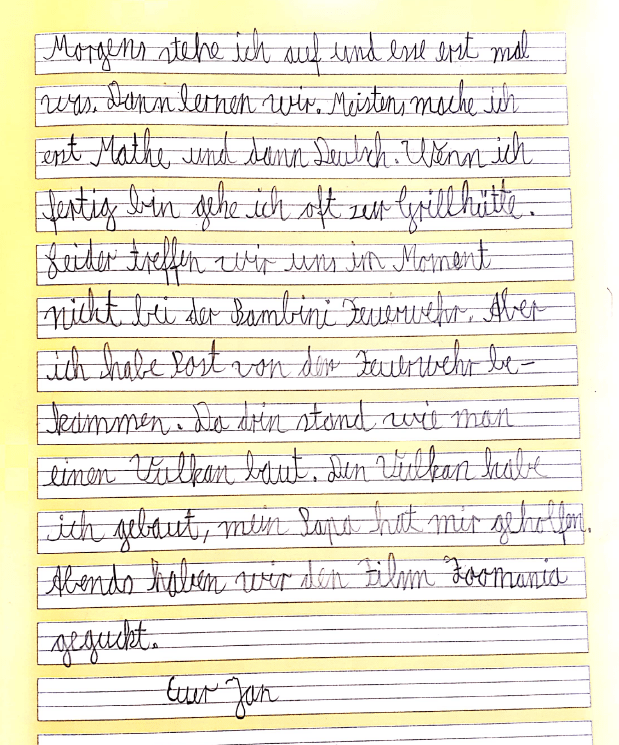 Morgens stehe ich auf und esse erst mal
was. Dann lernen wir. Meistens mache ich
erst Mathe und dann Deutsch. Wenn ich
fertig bin gehe ich oft zur Grillhütte.
Leider treffen wir uns im Moment
nicht bei der Bambini Feuerwehr. Aber
ich habe Post von der Feuerwehr be-
kommen. Da drin stand wie man
einen Vulkan baut. Den Vulkan habe
ich gebaut, mein Papa hat mir geholfen.
Abends haben wir den Film Zoomania
geguckt.
Euer Jan